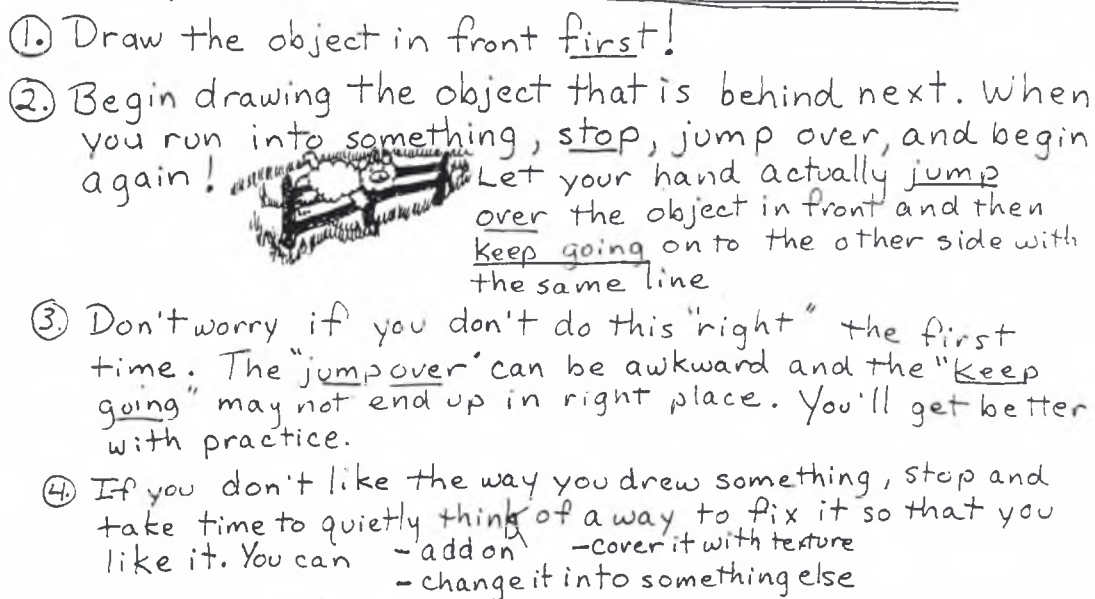 1. Draw the object in front first!
2. Begin drawing the object that is behind next. When
you run into something, stop, jump over, and begin
again! Let your hand actually jump
over the object in front and then
keep going on to the other side with
the same line
3. Don't worry if you don't do this "right" the first
time. The "jump over" can be awkward and the "keep
going" may not end up in right place. You'll get better
with practice.
4. If you don't like the way you drew something, stop and
take time to quietly think of a way to fix it so that you
like it. You can - add on - cover it with texture
- change it into something else